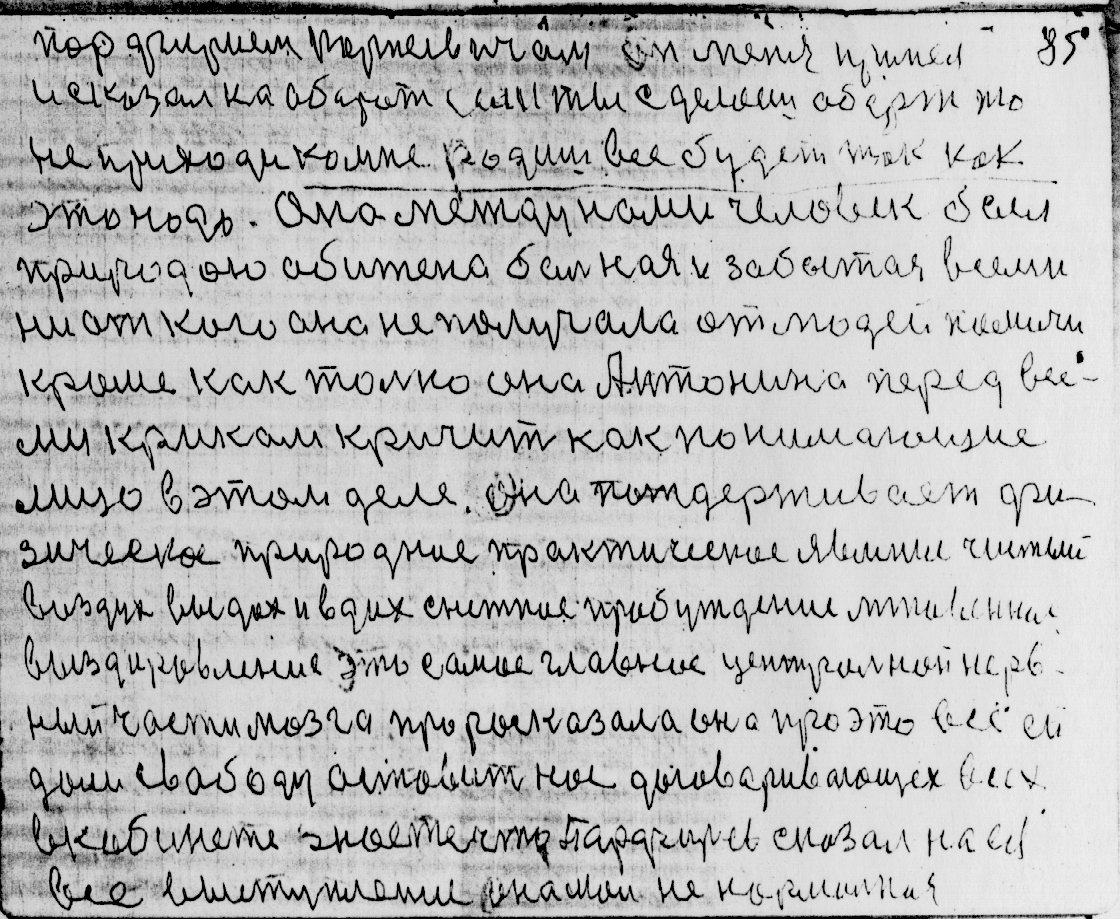 порфирием Корнеевичам Он меня принел 85
исказал на оборот если ты сделаеш оборот то
не приходи комне. Родиш все будет так как
этонадо. Она между нами человек бал
природою обижена балная и забытая всеми
ни от кого она не получала от людей помичи
кроме как толко она Антонина перед все-
ми криком кричит как понимающие
лицо в этом деле. Она поддерживает фи-
зическое природное практическое явление чистый
воздух выдох и вдох снежное пробуждение мгновенное
выздировление это самое главное централной нерв-
ный части мозга про росказала она про это все ей
дали свабоду астовит нас договаривающех всех
вкабинете знаете что Парфирев сказал на ей
все выиступление она мол не нормалная